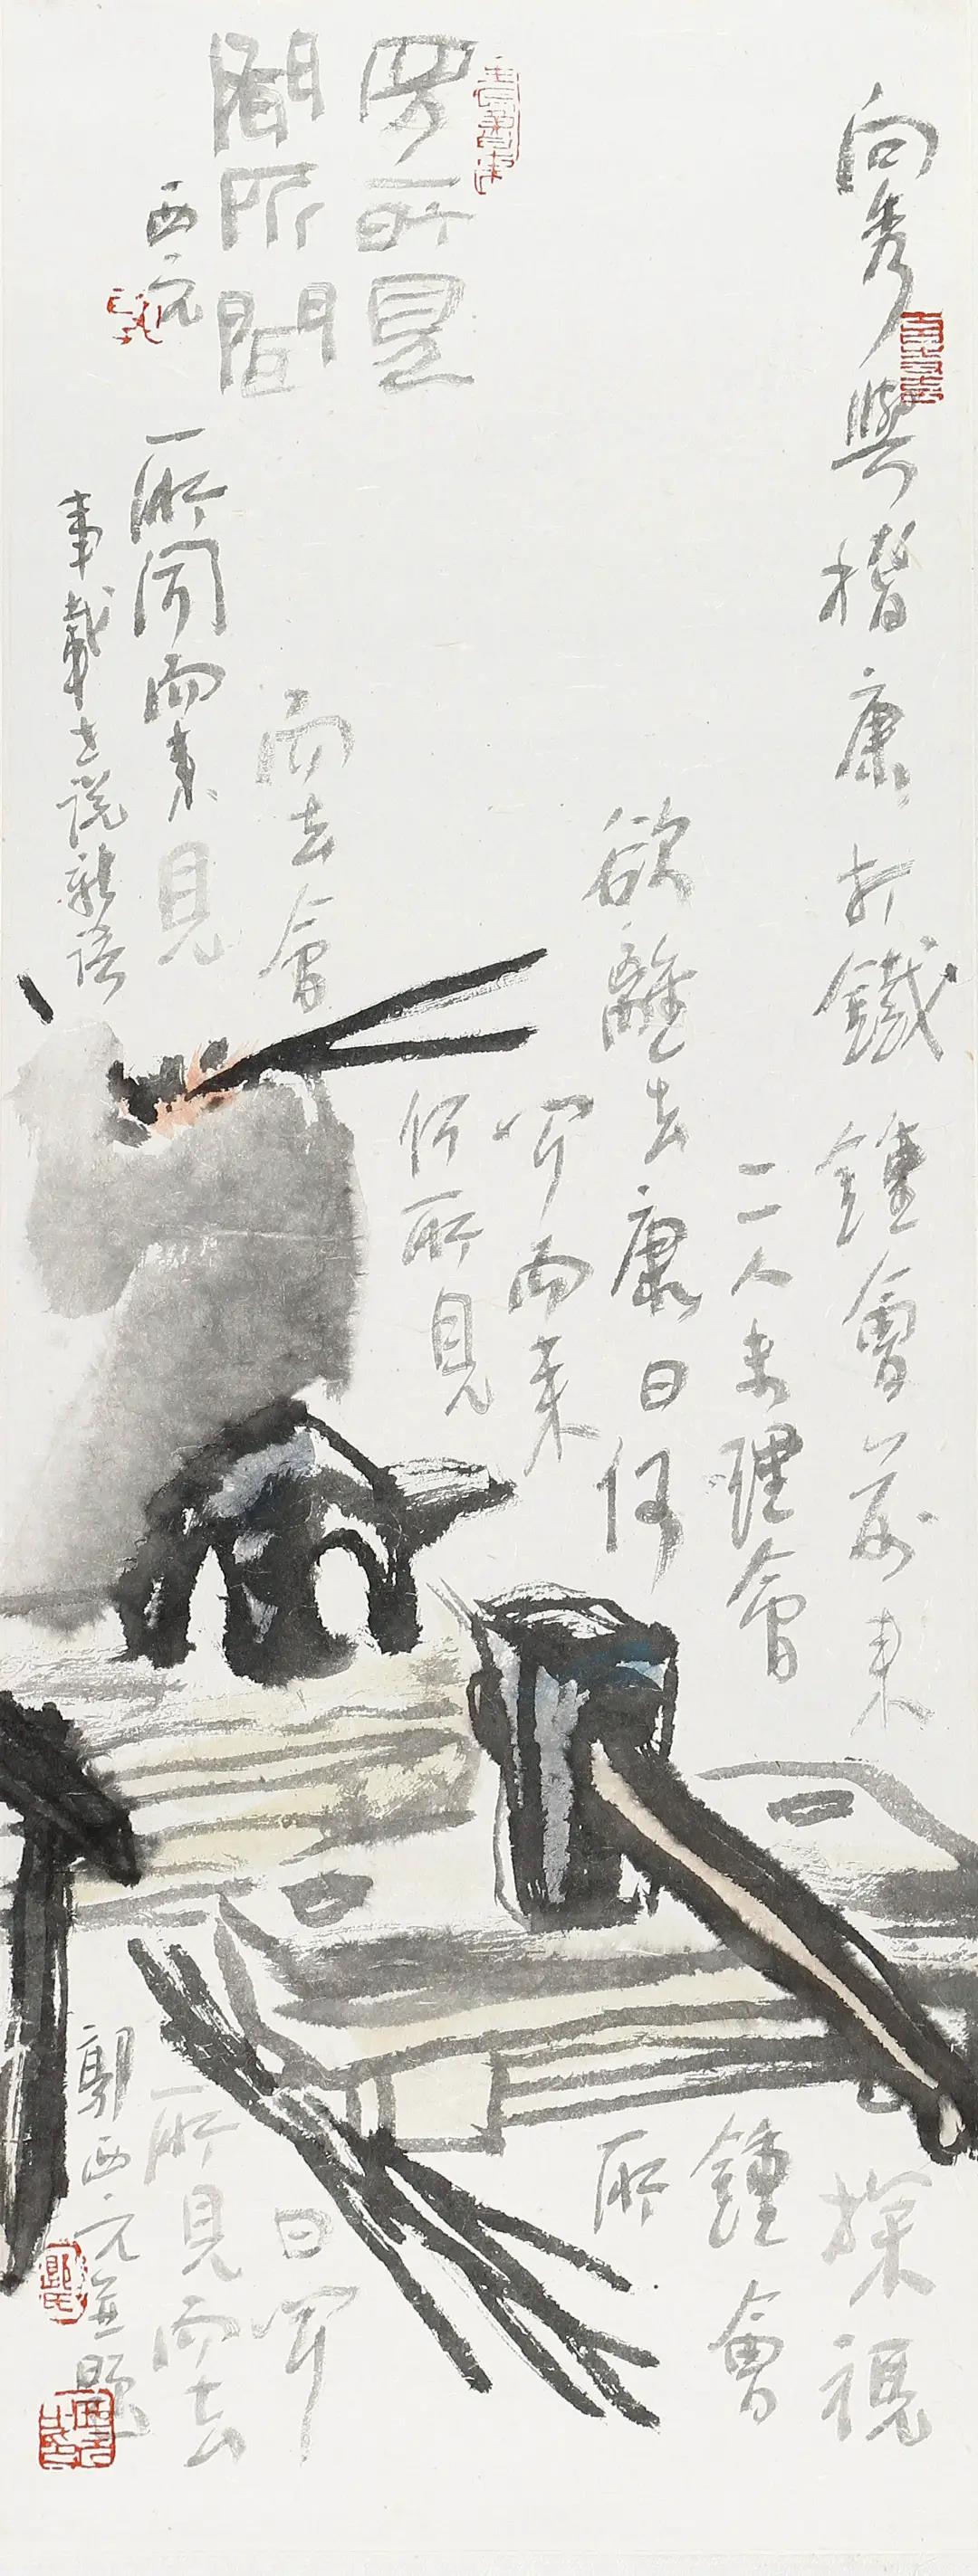 見所見
聞所聞
西元
向秀與嵇康打鐵鍾會前來探視
二人未理會鍾會
欲離去康曰何所
聞而來
何所見
而去會曰聞
所聞而來見所見而去
事載世說新語 郭西元並題